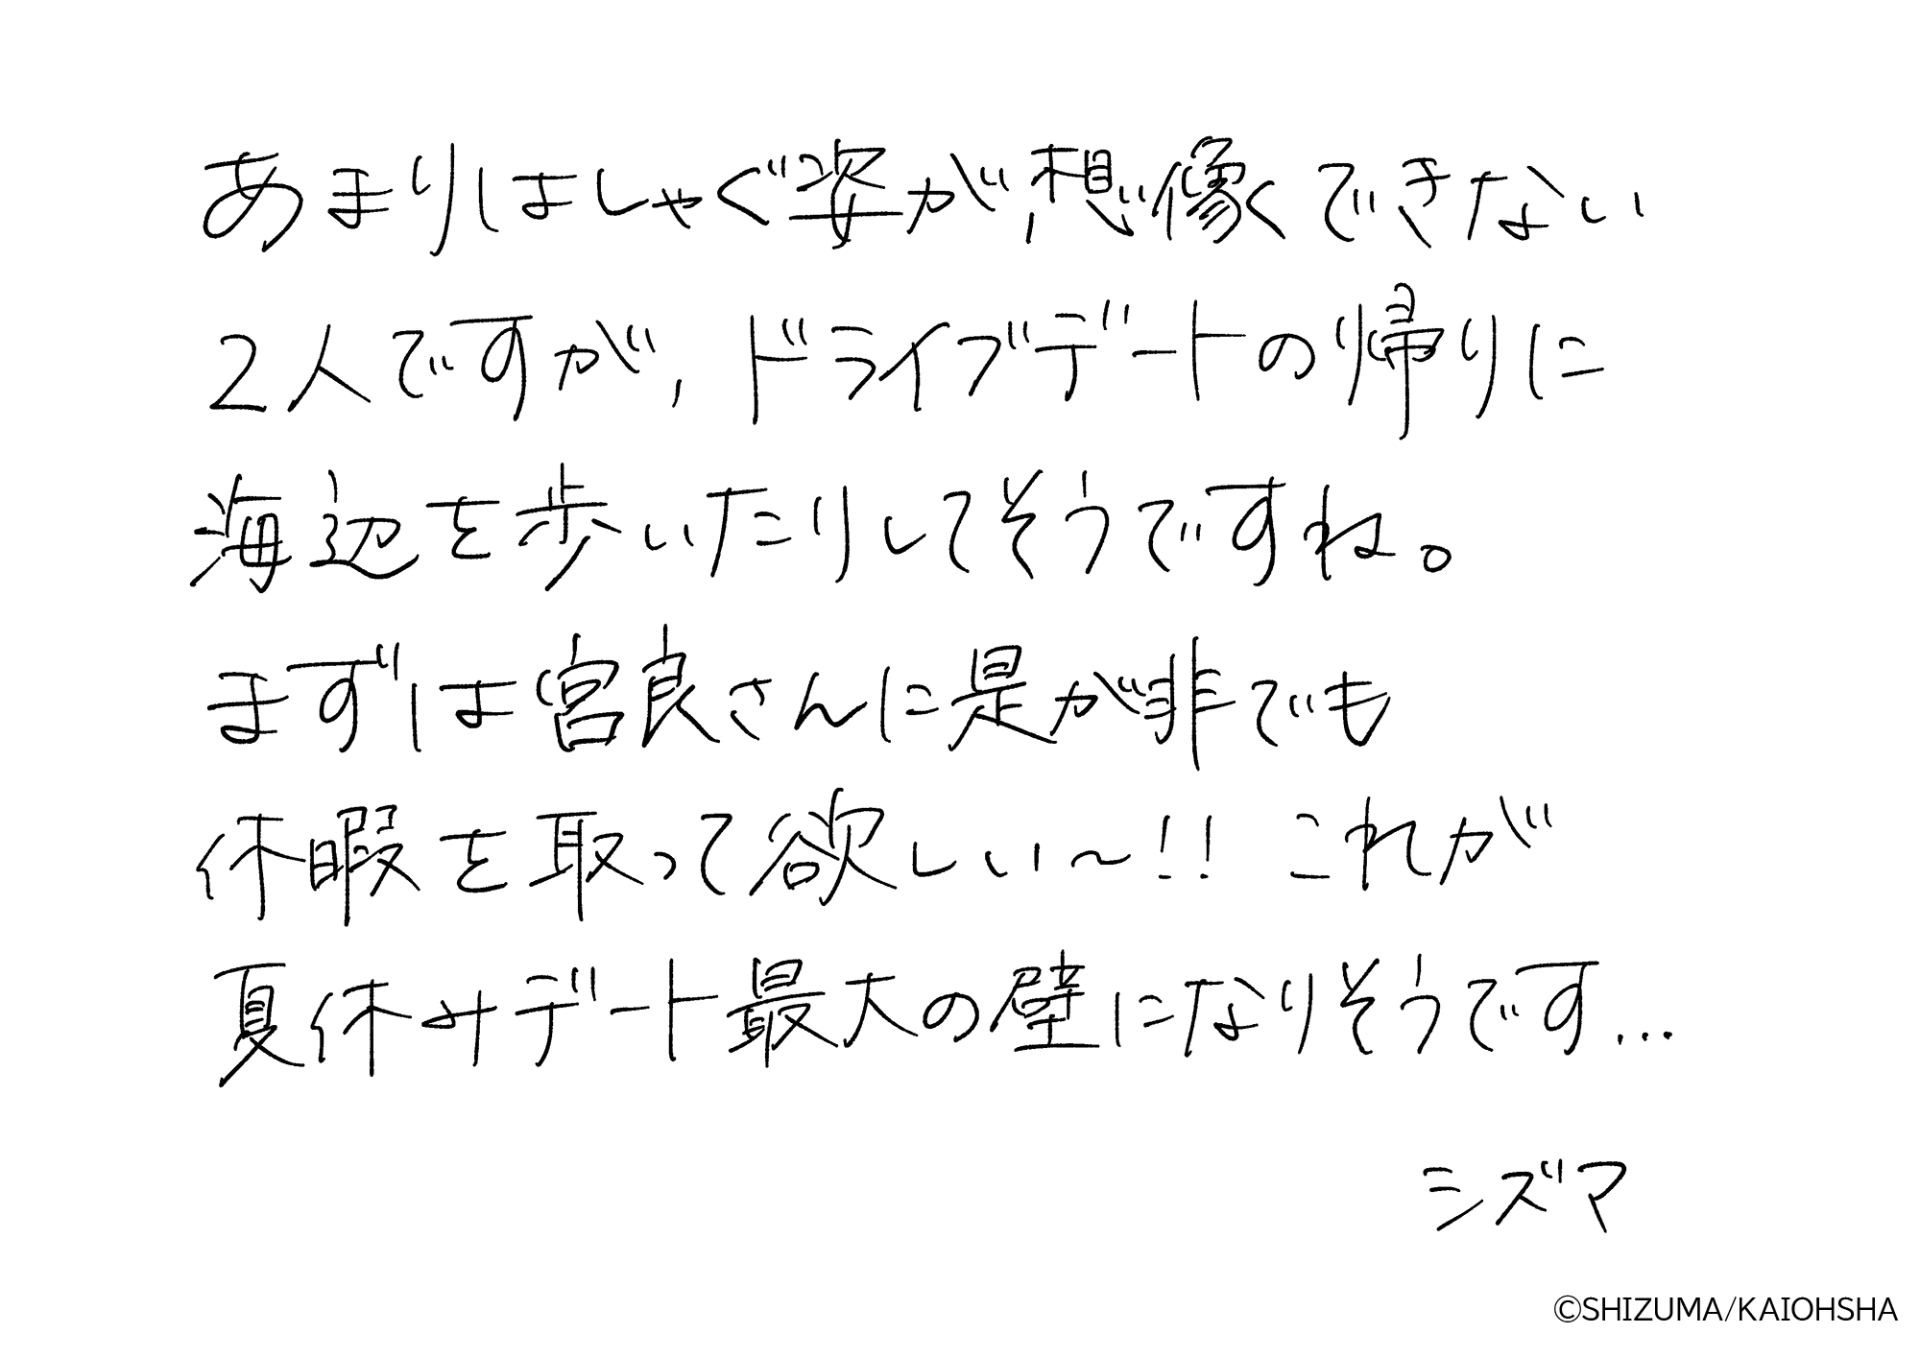 あまりはしゃぐ姿が想像くできない
2人ですが、ドライブデートの帰りに
海辺を歩いたりしてそうですね。
まずは宮良さんに是が非でも
休暇を取って欲しい〜!! これが
夏休みデート最大の壁になりそうです...
シズマ
©SHIZUMA/KAIOHSHA